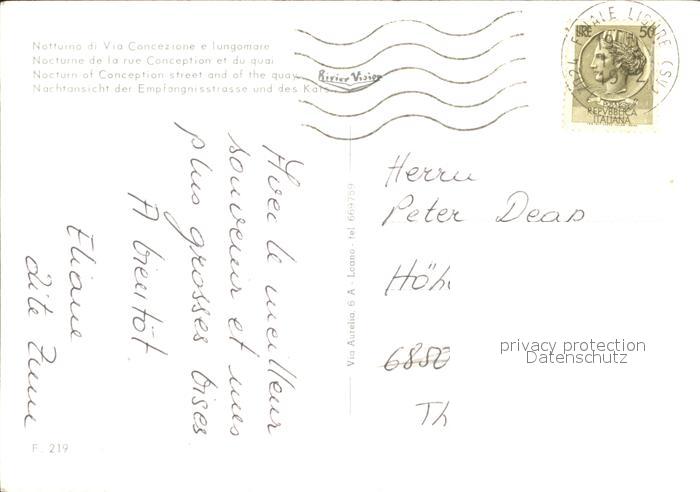 Notturno di Via Concezione e lungomare
Nocturne de la rue Conception et du quai
Nocturn of Conception street and of the quay
Nachtansicht der Empfängnisstrasse und des Kais
River Vision
FINALE LIGURE (SV)
LIRE 50
REPVBBLICA
ITALIANA
Avec le meilleur
souvenir et mes
plus grosses bises
A bientôt.
Eliane
dite Zuue
Via Aurelia, 6 A - Loano - tel. 669759
Herru
Peter Deas
Höh
6850
Th
privacy protection
Datenschutz
F. 219